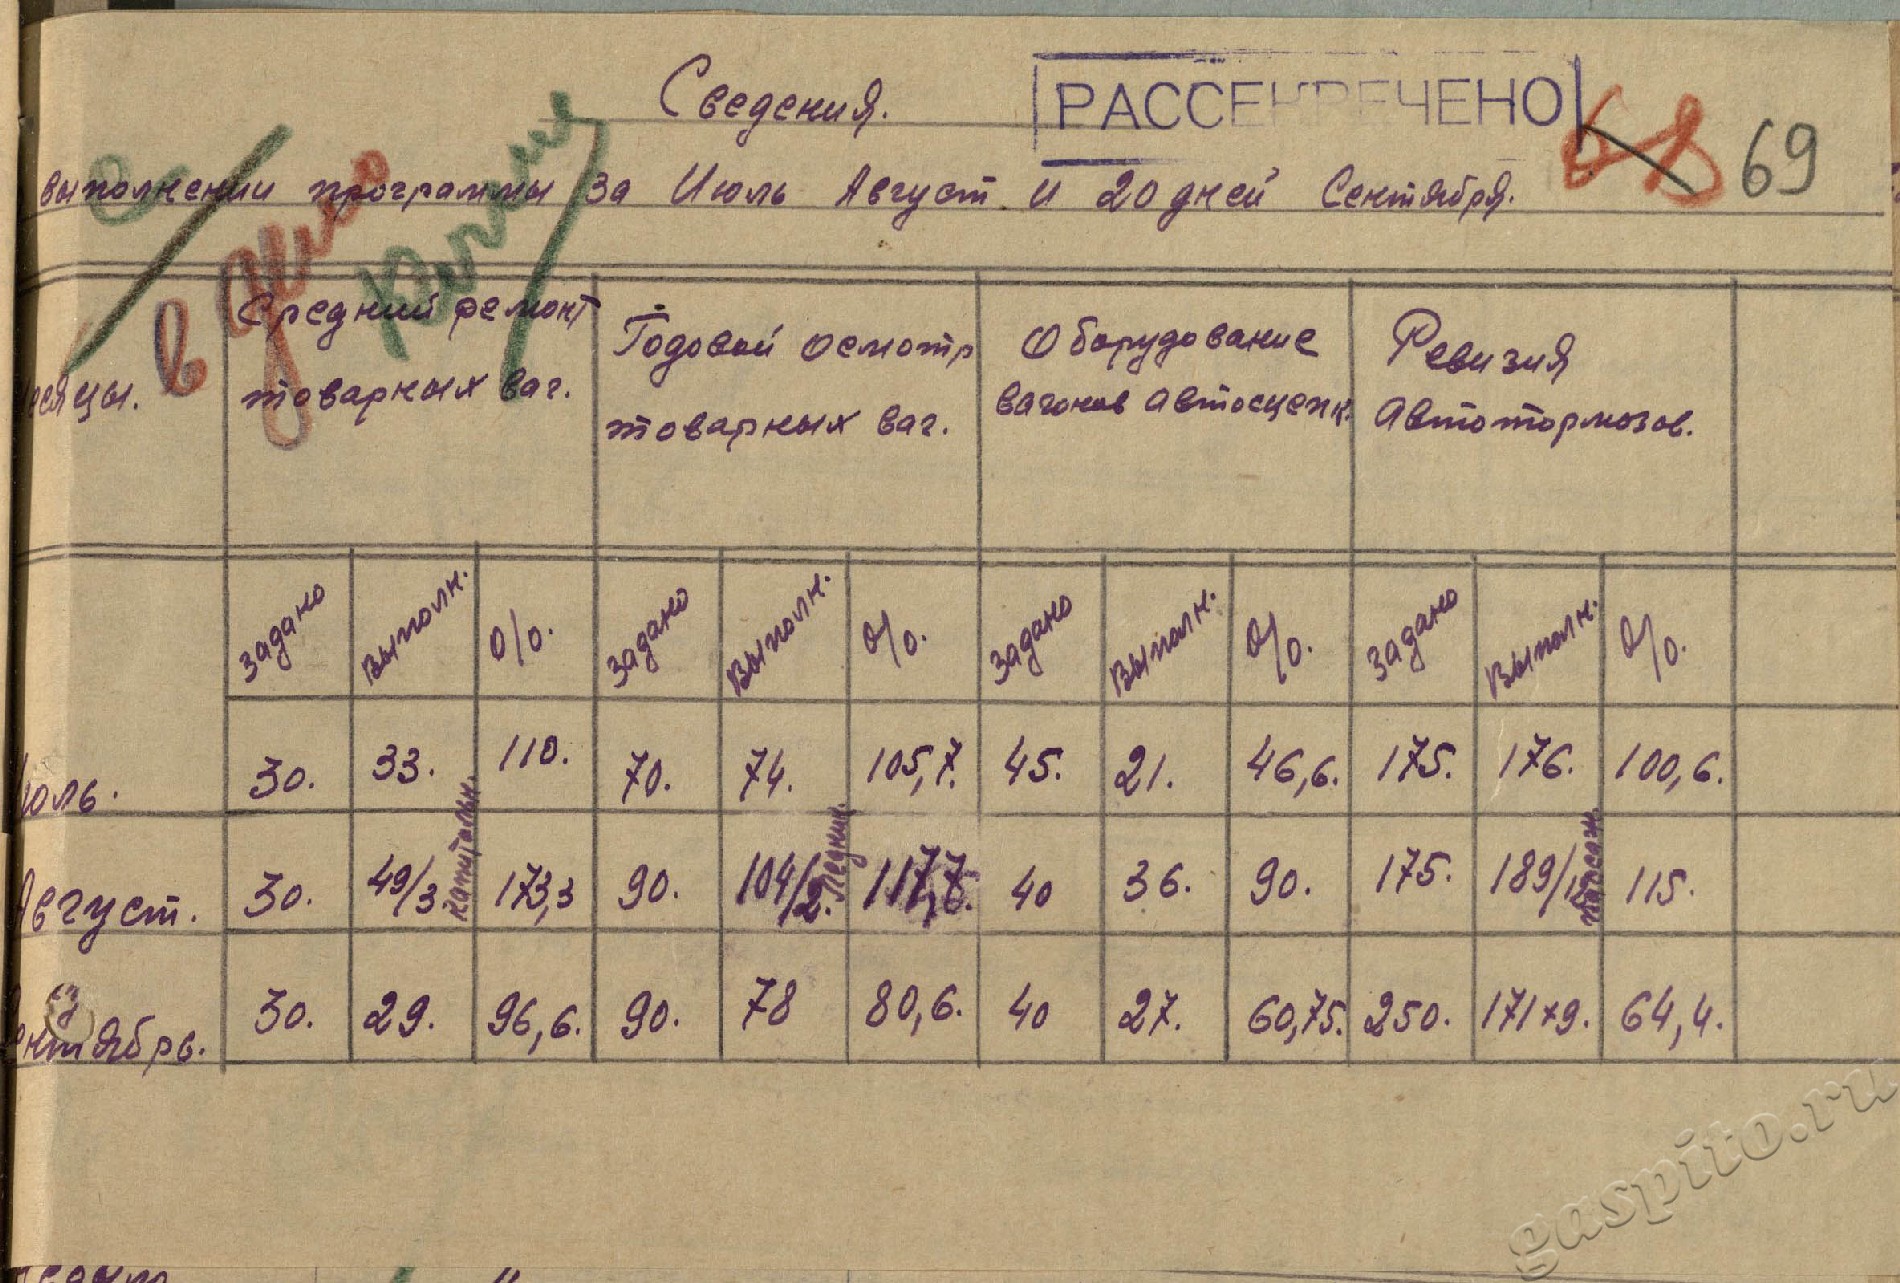 Сведения.
РАССЕКРЕЧЕНО
68 69
выполнении программы за Июль Август и 20 дней Сентября.
в дело
есяцы.
Средний ремонт товарных ваг.
Годовой осмотр товарных ваг.
Оборудование вагонов автосцепк.
Ревизия Автотормозов.
задано выполн. о/о. задано выполн. о/о. задано выполн. о/о. задано выполн. о/о.
юль. 30. 33. 110. 70. 74. 105,7. 45. 21. 46,6. 175. 176. 100,6.
Август. 30. 49/3 капитальн. 173,3 90. 104/2. 40 36. 90. 175. 189/12 пассаж. 115.
ентябрь. 30. 29. 96,6. 90. 78 80,6. 40 27. 60,75. 250. 171+9. 64,4.
gaspito.ru